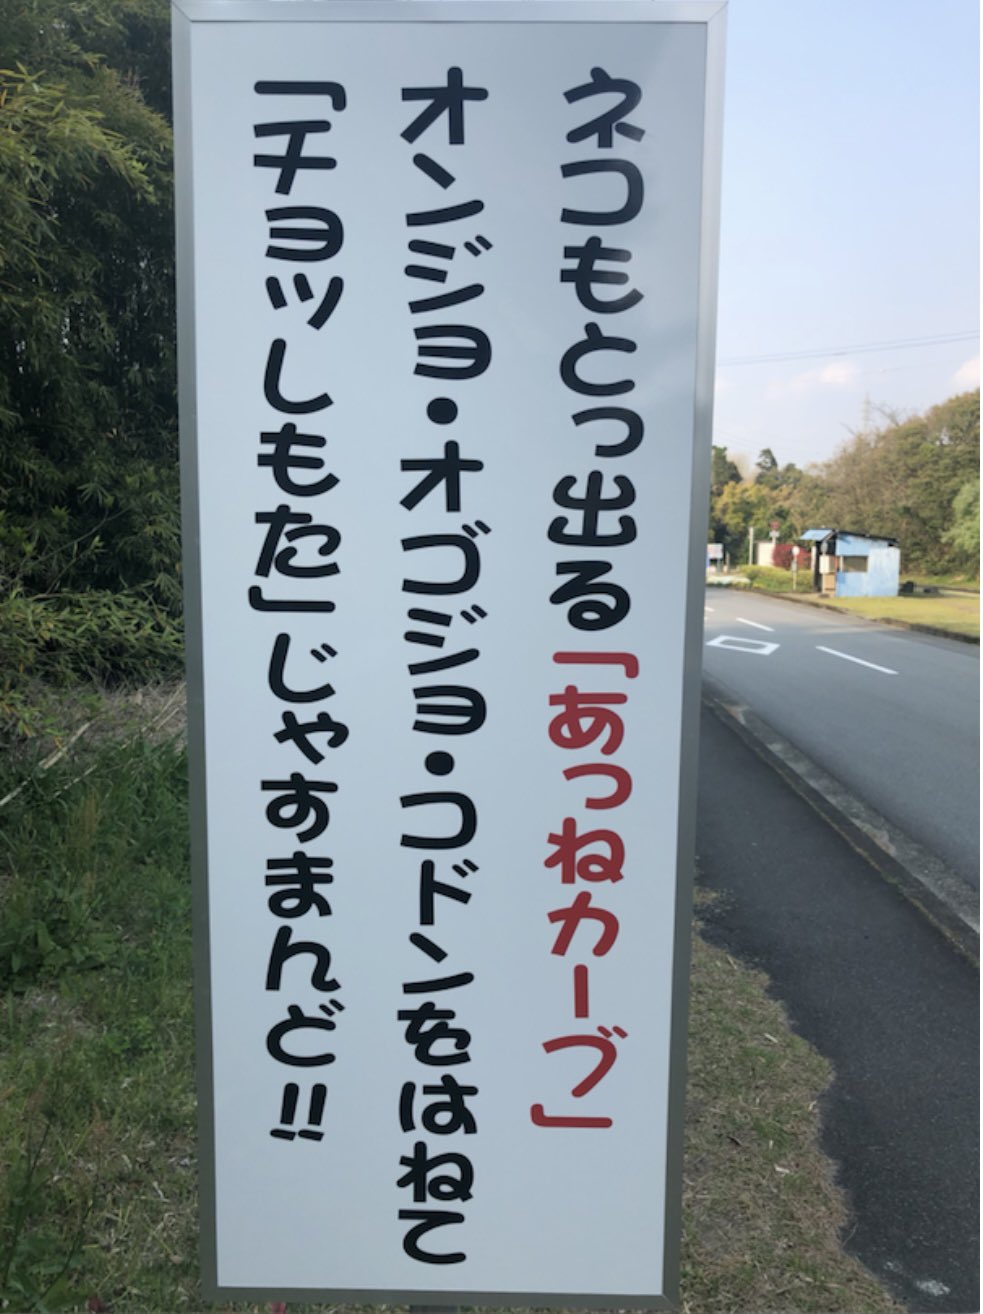 ネコもとっ出る「あっねカーブ」
オンジョ・オゴジョ・コドンをはねて
「チョッしもた」じゃすまんど!!